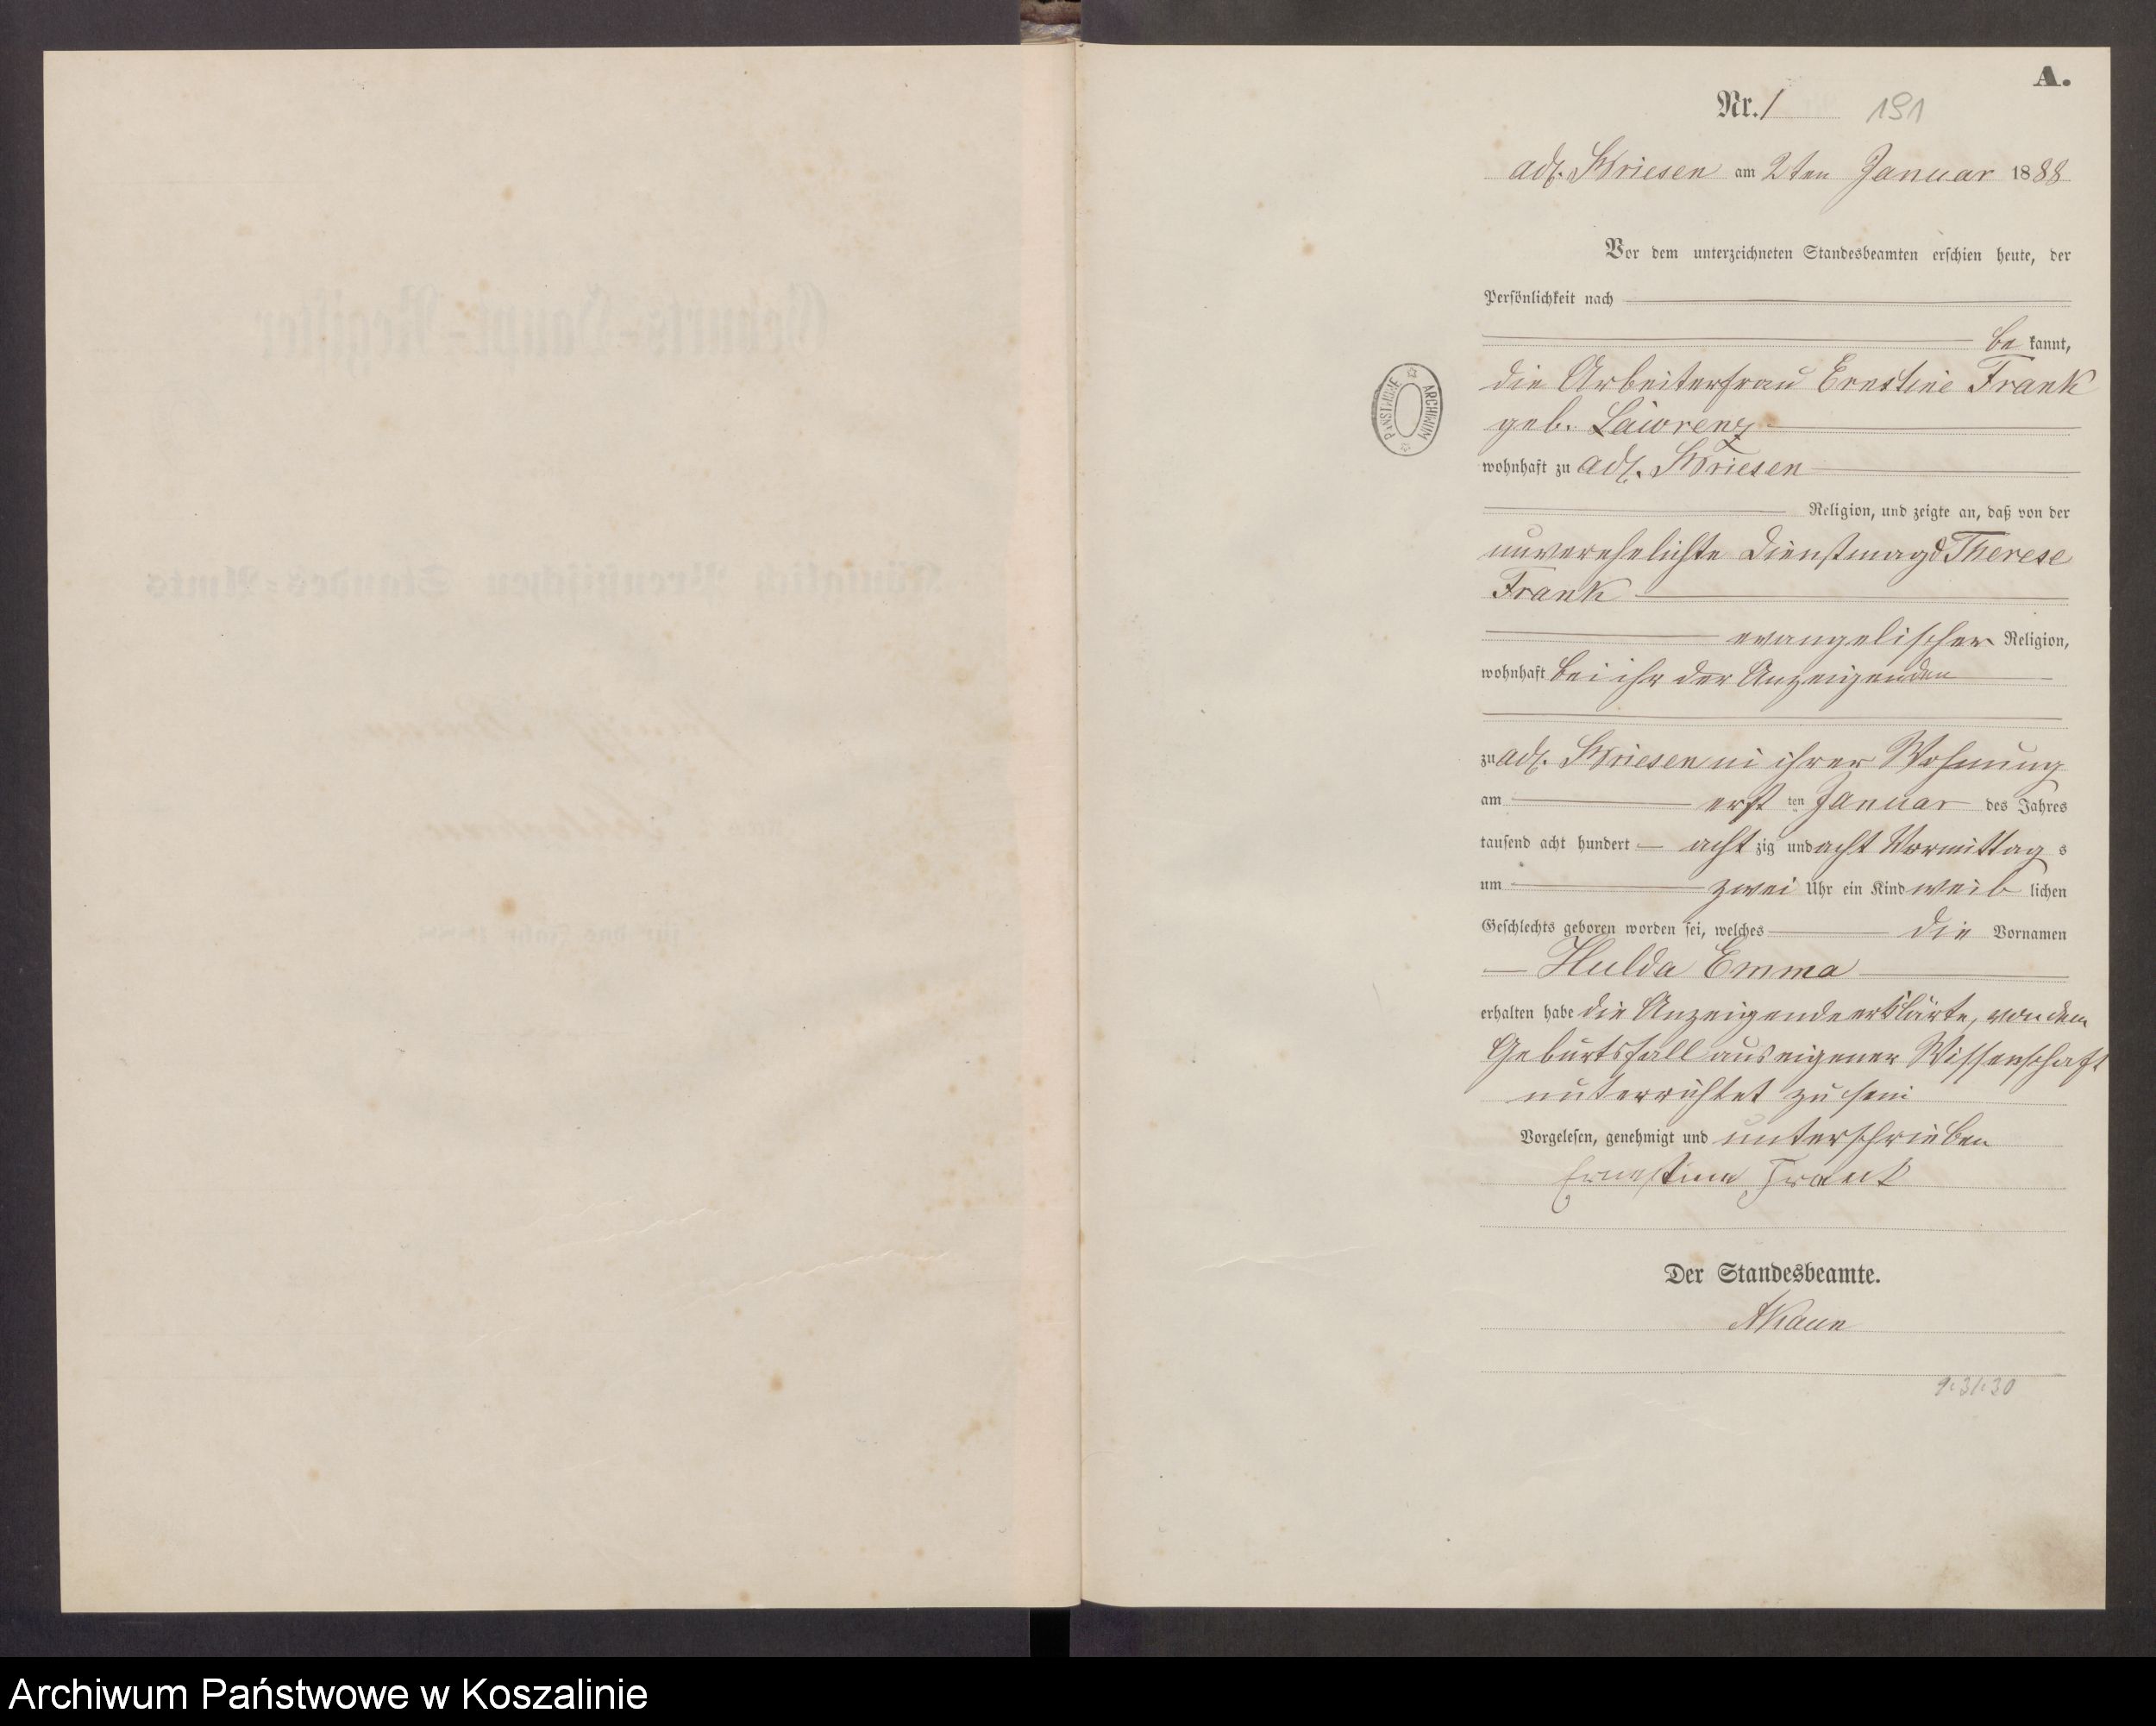 A.
Nr. 1 191
adl. Briesen am 2ten Januar 1888
Vor dem unterzeichneten Standesbeamten erschien heute, der
Persönlichkeit nach
be kannt,
die Arbeiterfrau Ernstine Frank
geb. Lawrenz
wohnhaft zu adl. Briesen
Religion, und zeigte an, daß von der
unverehelichte Dienstmagd Therese
Frank
evangelischer Religion,
wohnhaft bei ihr der Anzeigenden
zu adl. Briesen in ihrer Wohnung
am erst ten Januar des Jahres
tausend acht hundert acht zig und acht Vormittag s
um zwei Uhr ein Kind weib lichen
Geschlechts geboren worden sei, welches die Vornamen
Hulda Emma
erhalten habe die Anzeigende erklärte, von dem
Geburtsfall aus eigener Wissenschaft
unterrichtet zu sein
Vorgelesen, genehmigt und unterschrieben
Ernestine Frank
Der Standesbeamte.
PAŃSTWOWE ARCHIWUM
Geburts-Haupt-Register
Königlich Preußischen Standes-Amts
Archiwum Państwowe w Koszalinie